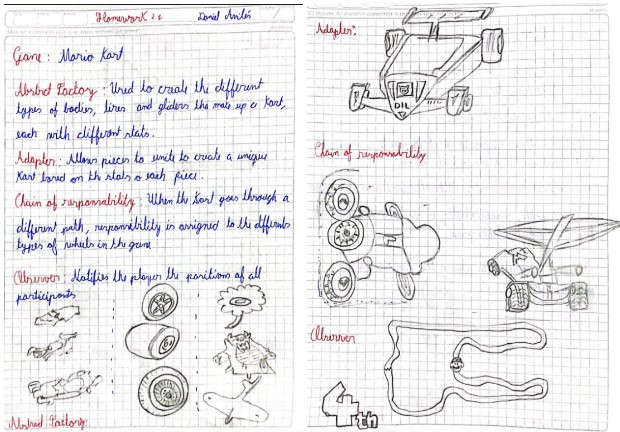 Homework 24
Daniel Avilés
Game : Mario Kart
Abstract Factory : Used to create the different
types of bodies, tires and gliders the make up a Kart,
each with different stats.
Adapter : Allows pieces to unite to create a unique
Kart based on the stats o each piece.
Chain of responsability : When the Kart goes through a
different path, responsibility is assigned to the differents
types of wheels in the game
Observer : Notifies the player the positions of all
participants
Abstract Factory:
Adapter:
DIL
Chain of responsability
Observer
4rth